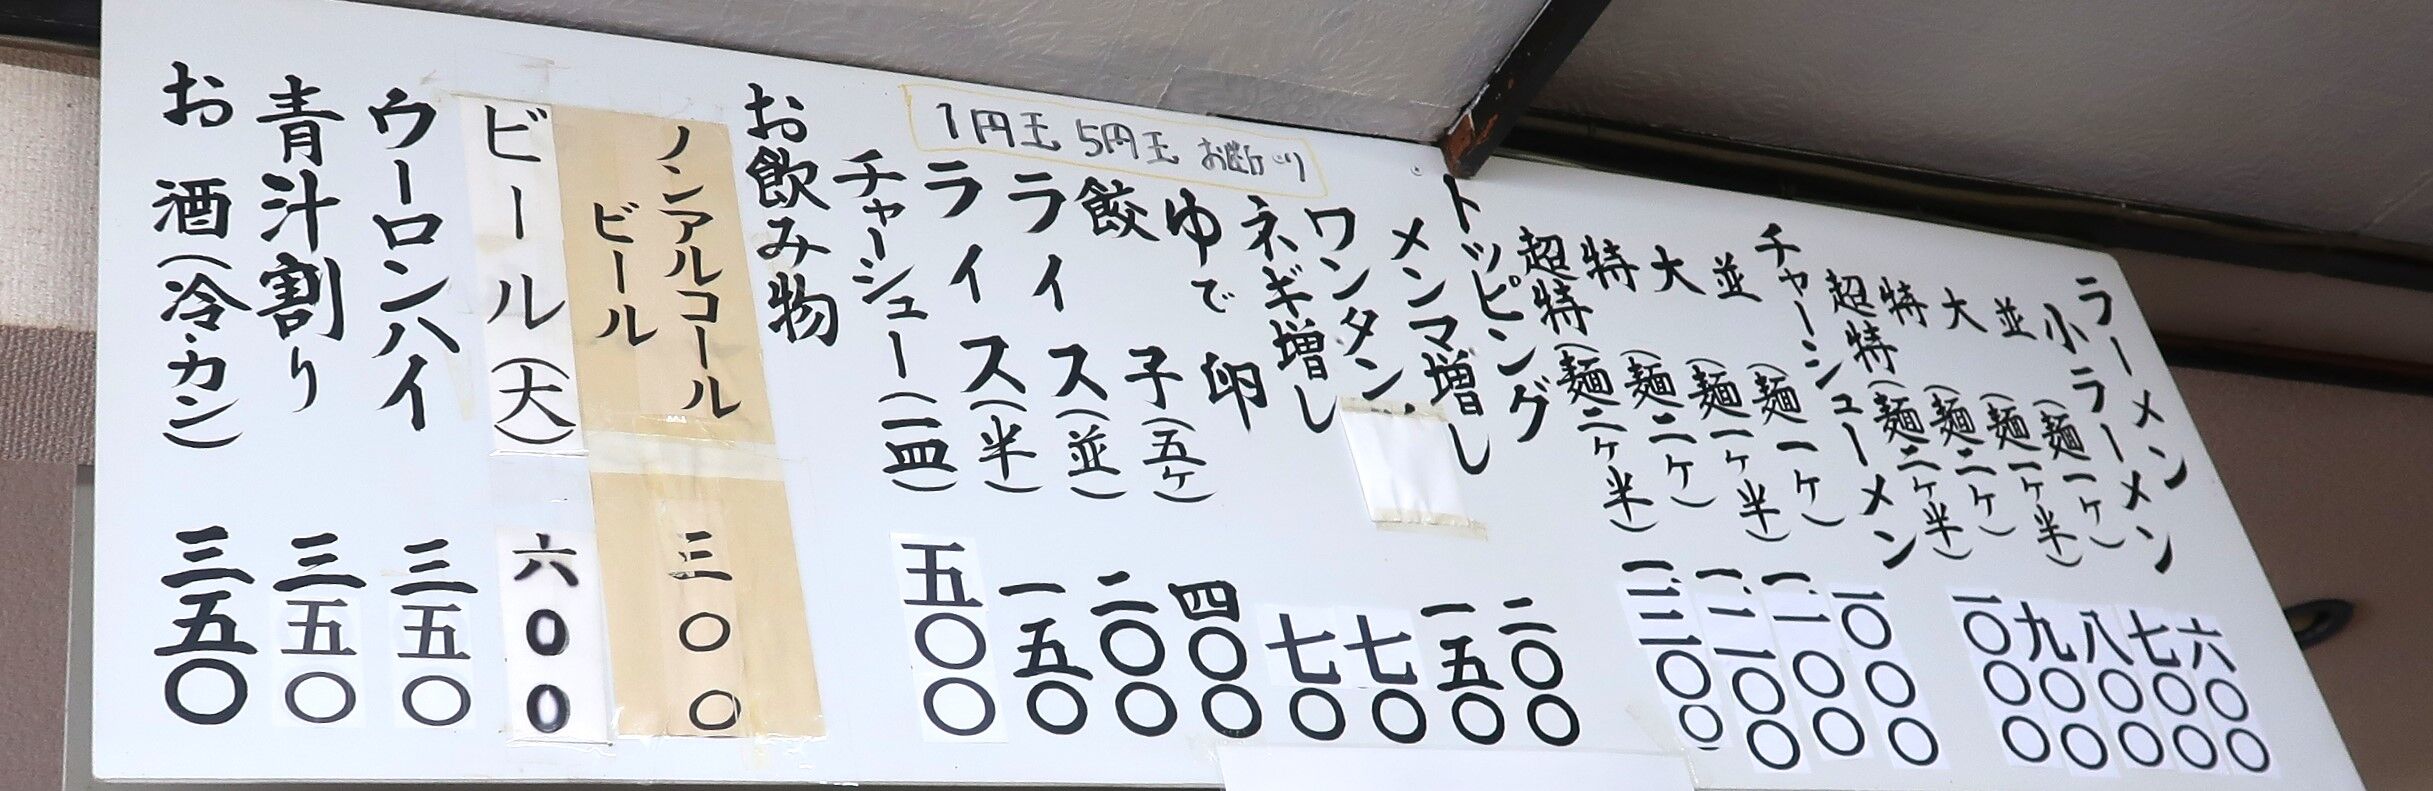 ラーメン
小ラーメン 六〇〇
並(麺一ヶ) 七〇〇
大(麺一ヶ半) 八〇〇
特(麺二ヶ) 九〇〇
超特(麺二ヶ半) 一〇〇〇
チャーシューメン
並(麺一ヶ) 一〇〇〇
大(麺一ヶ半) 一、一〇〇
特(麺二ヶ) 一、二〇〇
超特(麺二ヶ半) 一、三〇〇
トッピング
メンマ増し 二〇〇
ワンタン 一五〇
ネギ増し 七〇
ゆで卵 七〇
餃子(五ヶ) 四〇〇
ライス(並) 二〇〇
ライス(半) 一五〇
チャーシュー(一皿) 五〇〇
1円玉 5円玉 お断り
お飲み物
ノンアルコール
ビール 三〇〇
ビール(大) 六00
ウーロンハイ 三五〇
青汁割り 三五〇
お酒(冷・カン) 三五〇